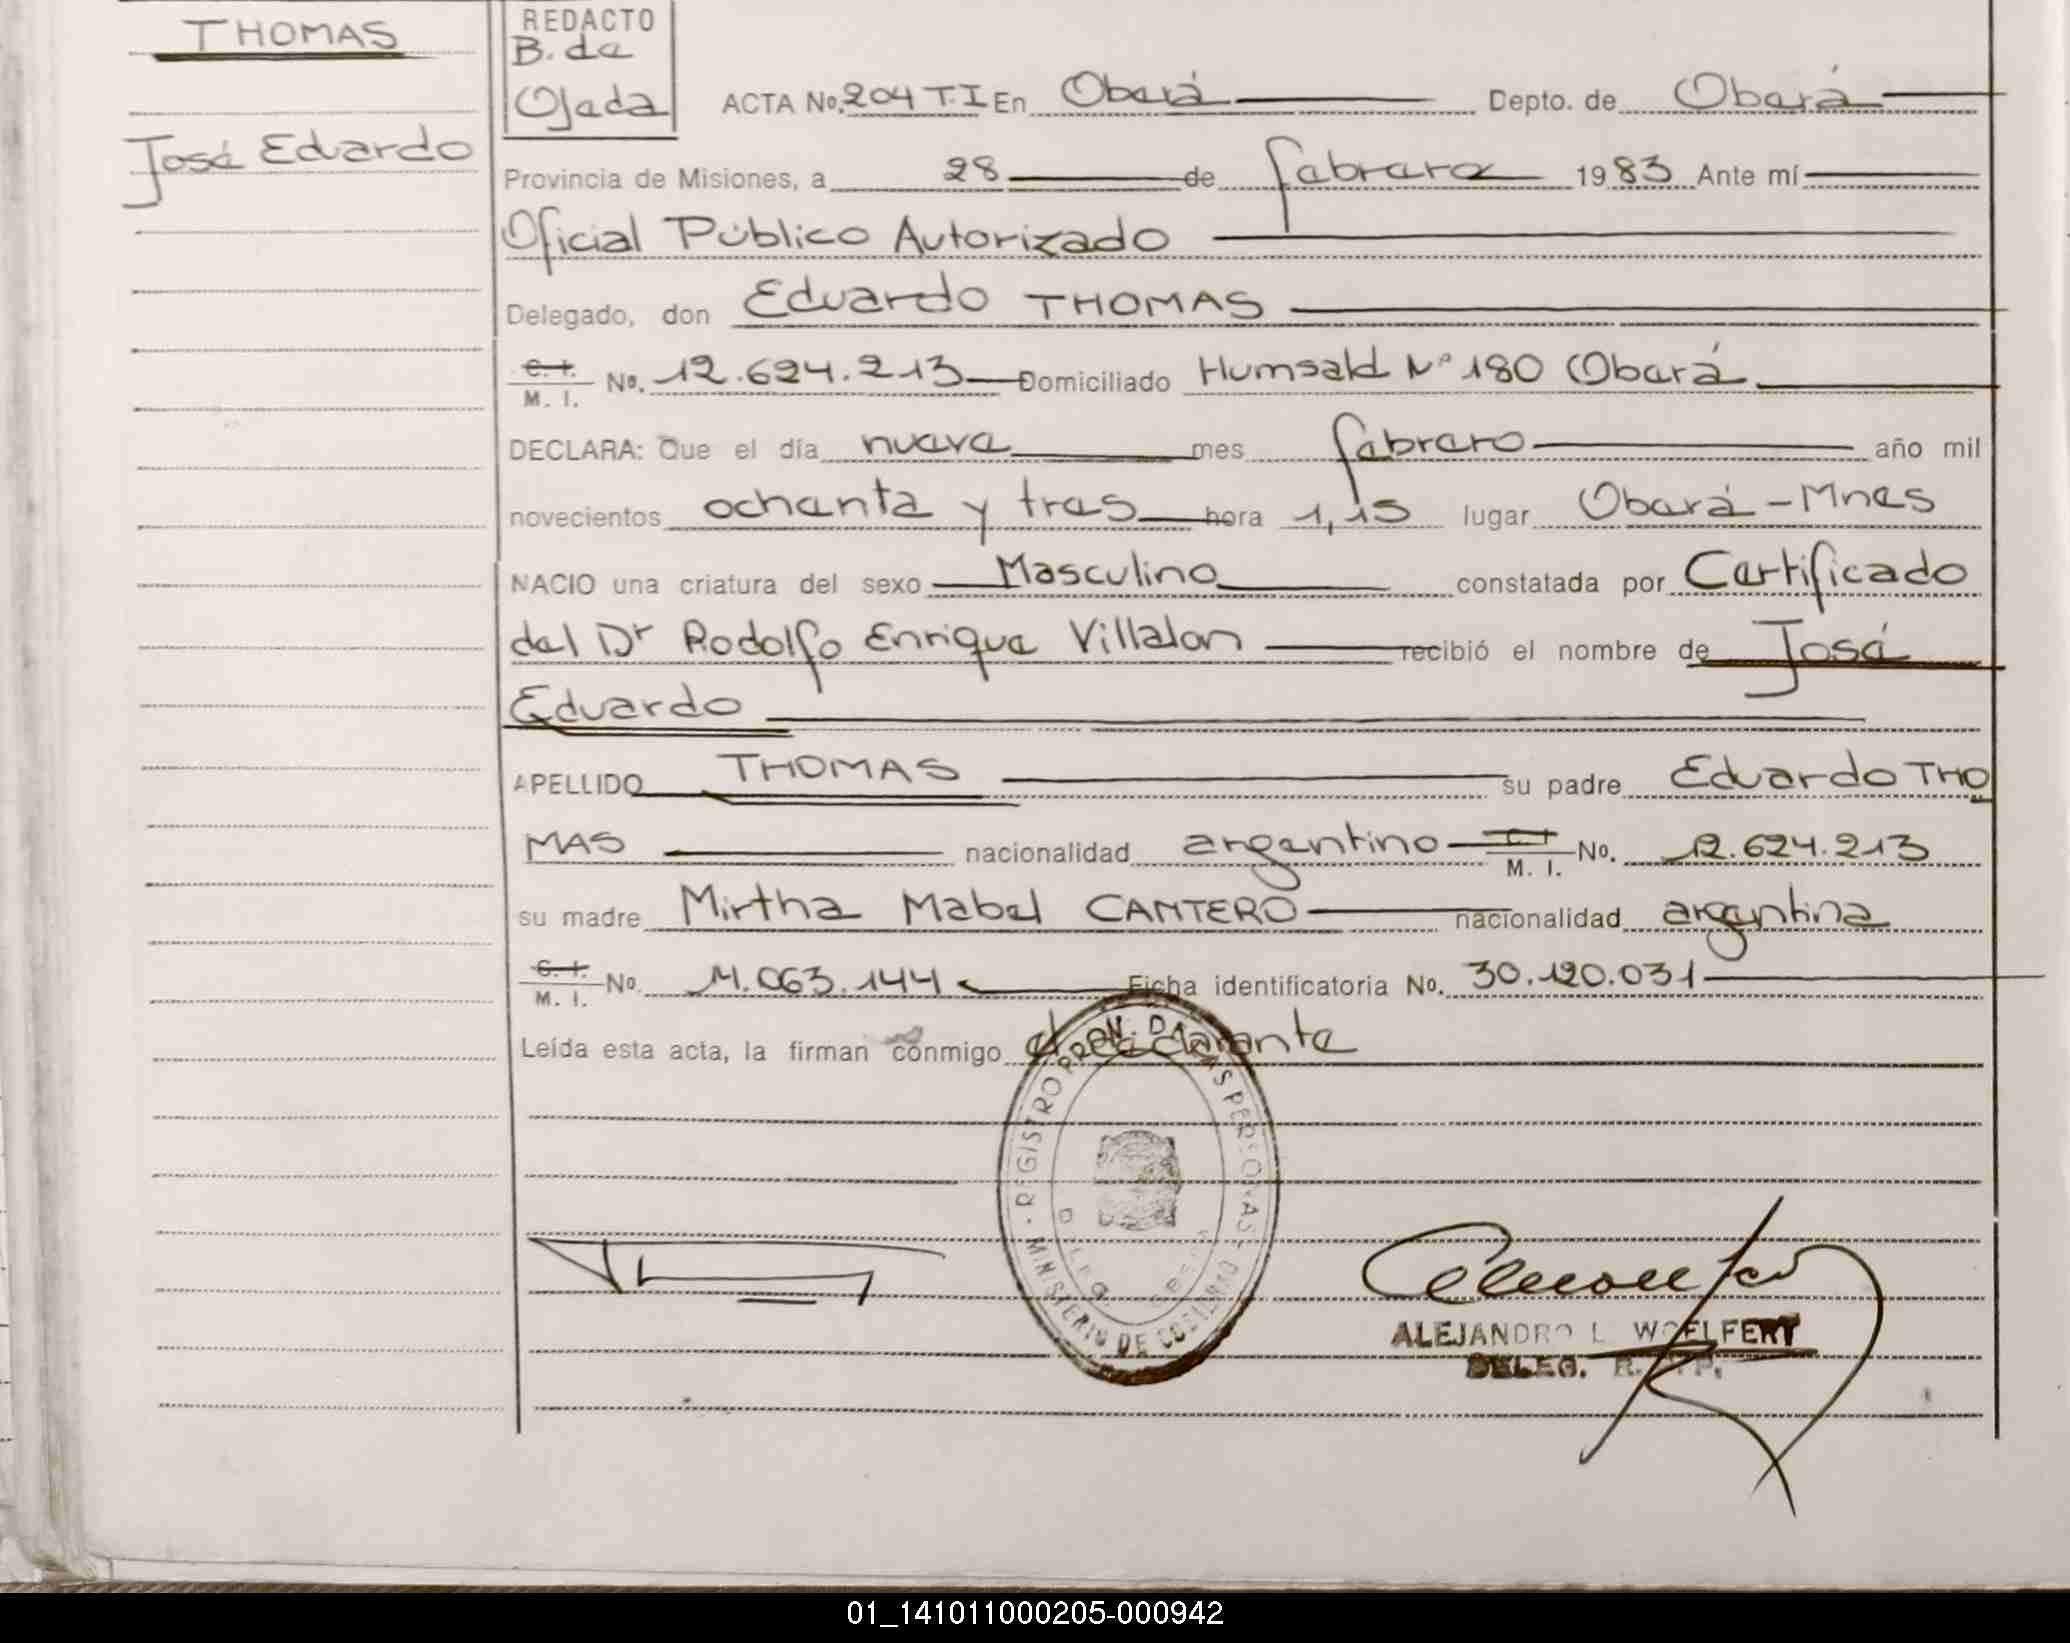 THOMAS
José Eduardo
REDACTO
B. de
Ojeda
ACTA No. 204 T.I En Oberá Depto. de Oberá
Provincia de Misiones, a 28 de febrero 1983 Ante mí
Oficial Público Autorizado
Delegado, don Eduardo THOMAS
C. I.
M. I. No. 12.624.213 Domiciliado Humsald Nº 180 Oberá
DECLARA: Que el día nueve mes febrero año mil
novecientos ochenta y tres hora 1,15 lugar Oberá - Mnes
NACIO una criatura del sexo Masculino constatada por Certificado
del Dr Rodolfo Enrique Villalon recibió el nombre de José
Eduardo
APELLIDO THOMAS su padre Eduardo THO
MAS nacionalidad argentino C. I.
M. I. No. 12.624.213
su madre Mirtha Mabel CANTERO nacionalidad argentina
C. I.
M. I. No. 11.063.144 Ficha identificatoria No. 30.120.031
Leída esta acta, la firman conmigo el declarante
REGISTRO PROV. DE LAS PERSONAS
MINISTERIO DE GOBIERNO
ALEJANDRO L. WOELFERT
DELEG. R. P.
01_141011000205-000942